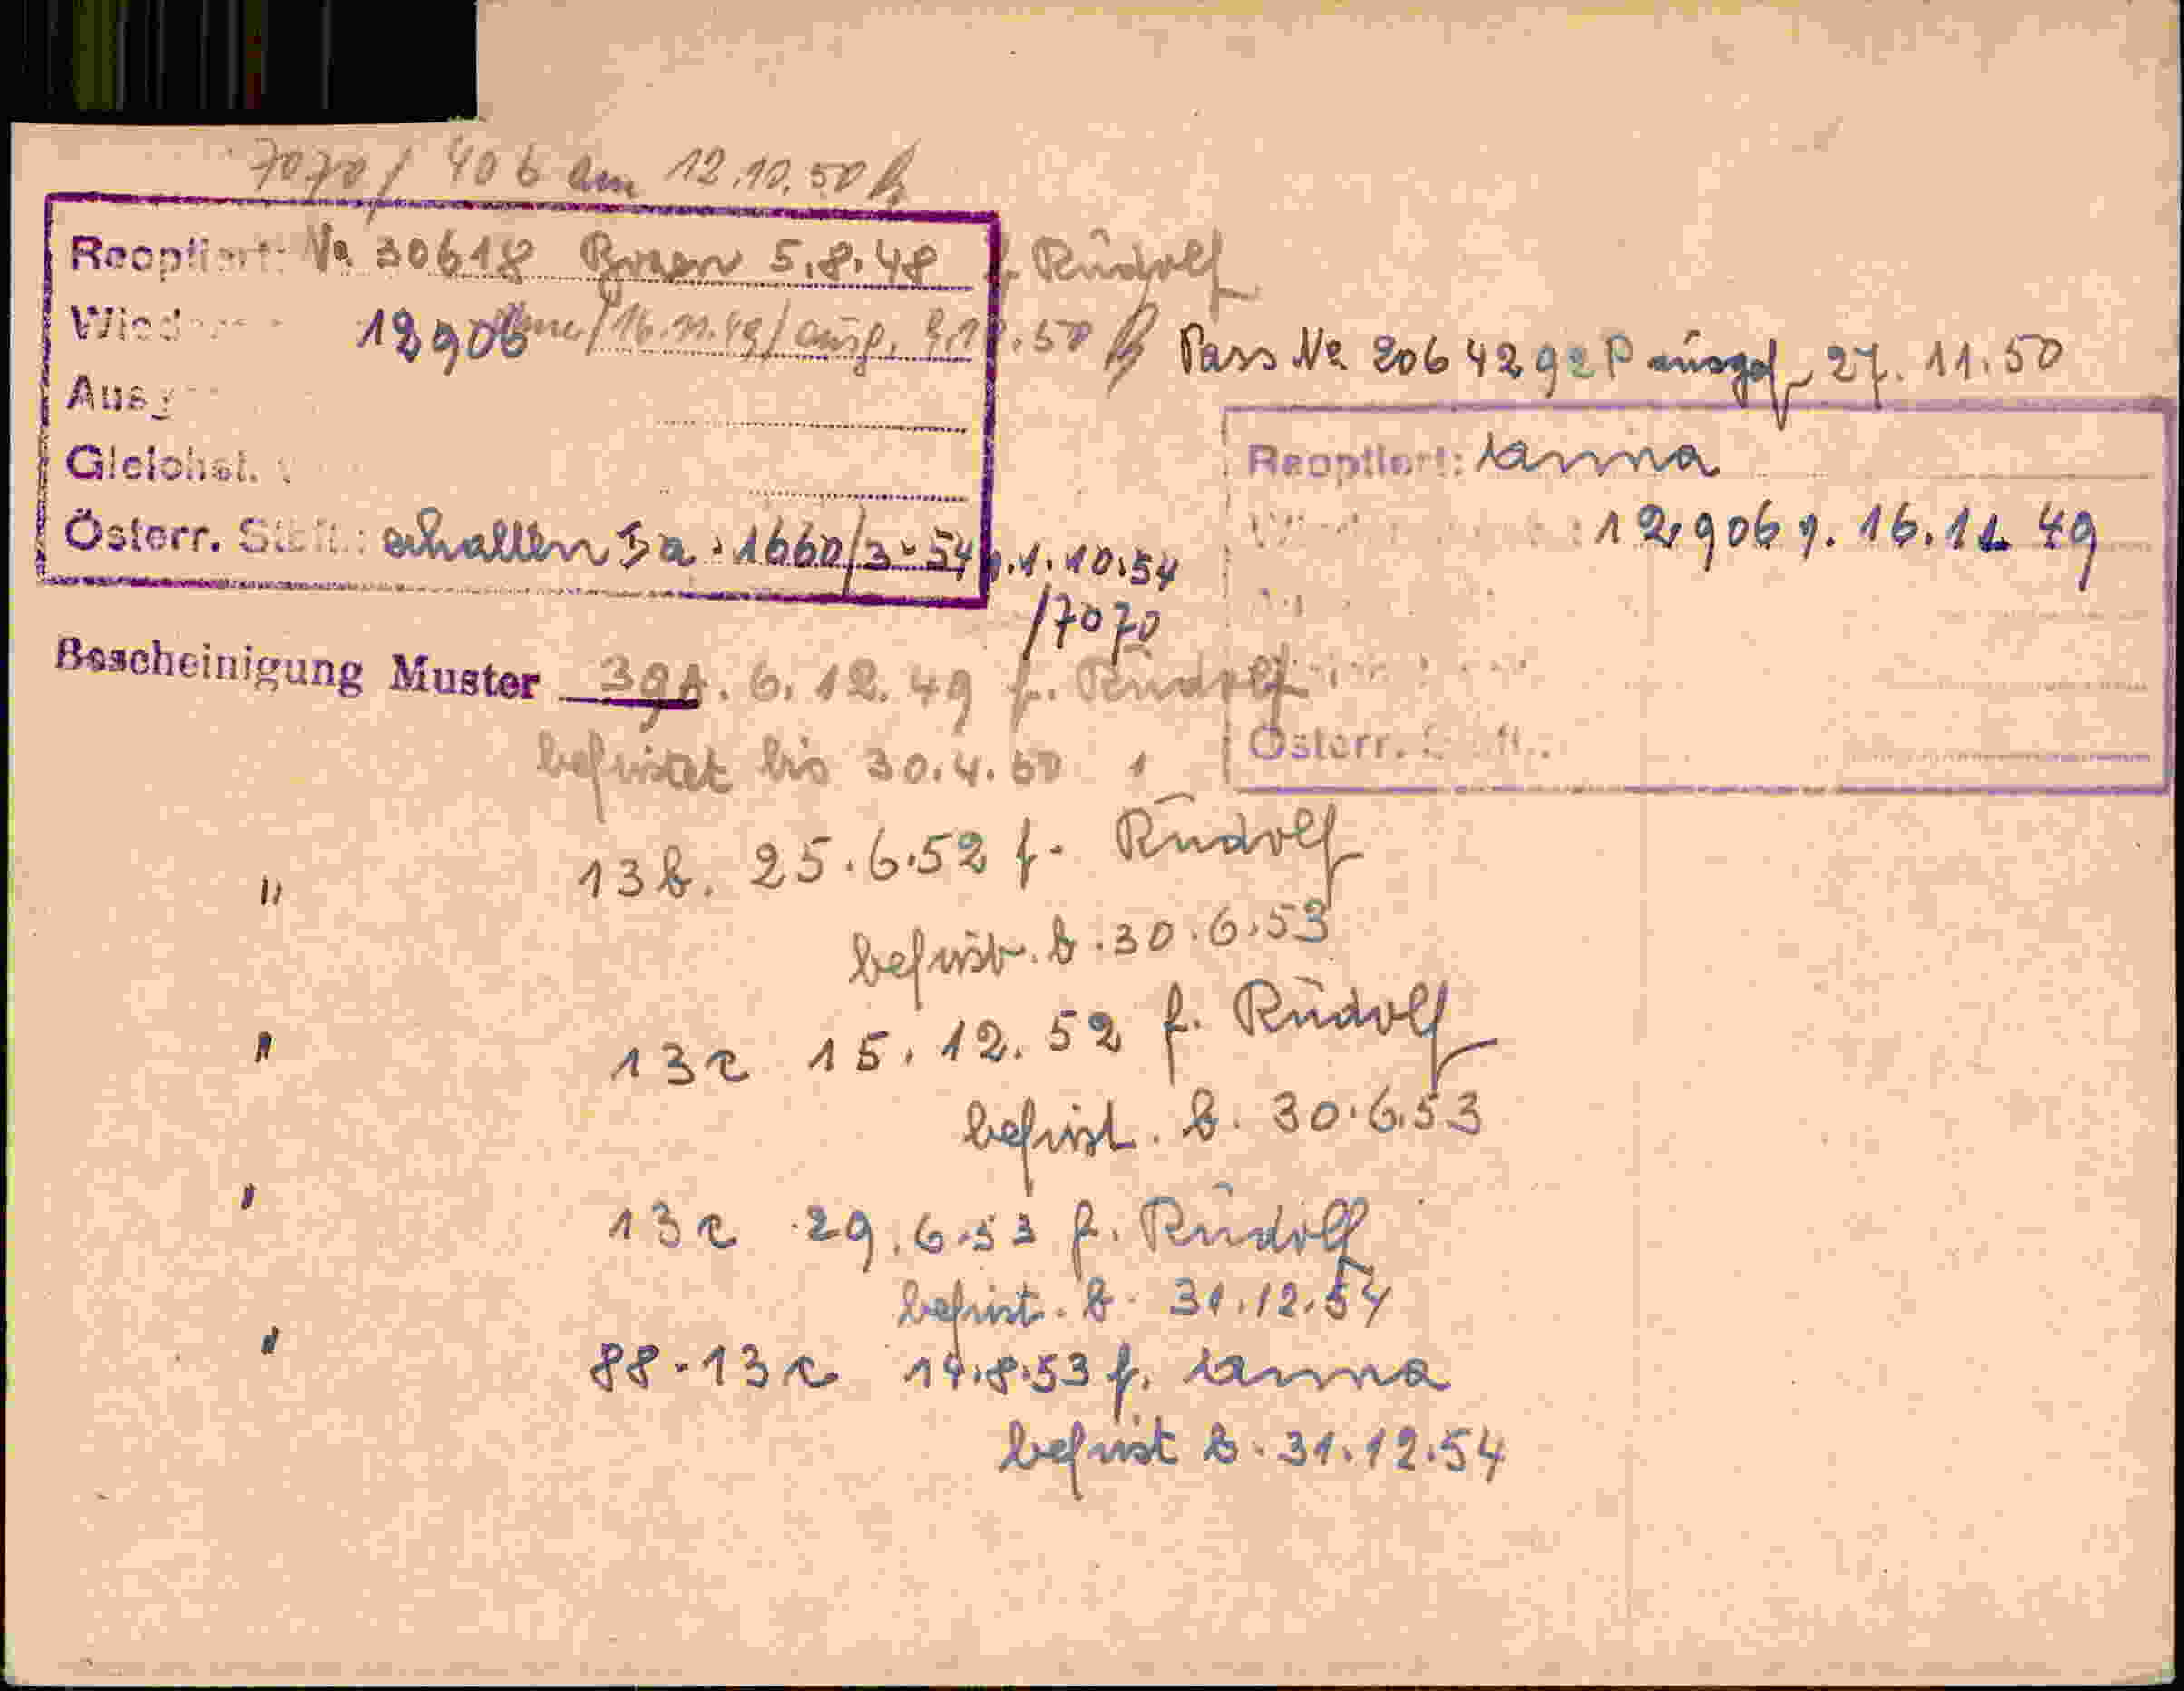 7070/ 406 am 12.10.50
Reoptiert: No 30618 Bozen 5.8.48 f. Rudolf
12906 /16.11.49/ ausg. .50
Pass No 2064292 P ausgef 27. 11. 50
Österr. erhalten Ia - 1660/3-54 1.10.54
/7070
Reoptiert: Anna
12906 16.11.49
Österr.
Bescheinigung Muster 39A. 6.12.49 f. Rudolf
befristet bis 30.4.50
" 13b. 25.6.52 f. Rudolf
befrist. b. 30.6.53
" 13c 15.12.52 f. Rudolf
befrist. b. 30.6.53
" 13c 29.6.53 f. Rudolf
befrist. b. 31.12.54
" 88-13c 14.8.53 f. Anna
befrist b. 31.12.54